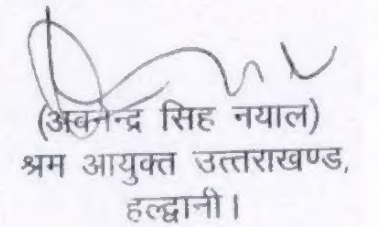 (अवनेन्द्र सिंह नयाल)
श्रम आयुक्त उत्तराखण्ड,
हल्द्वानी।